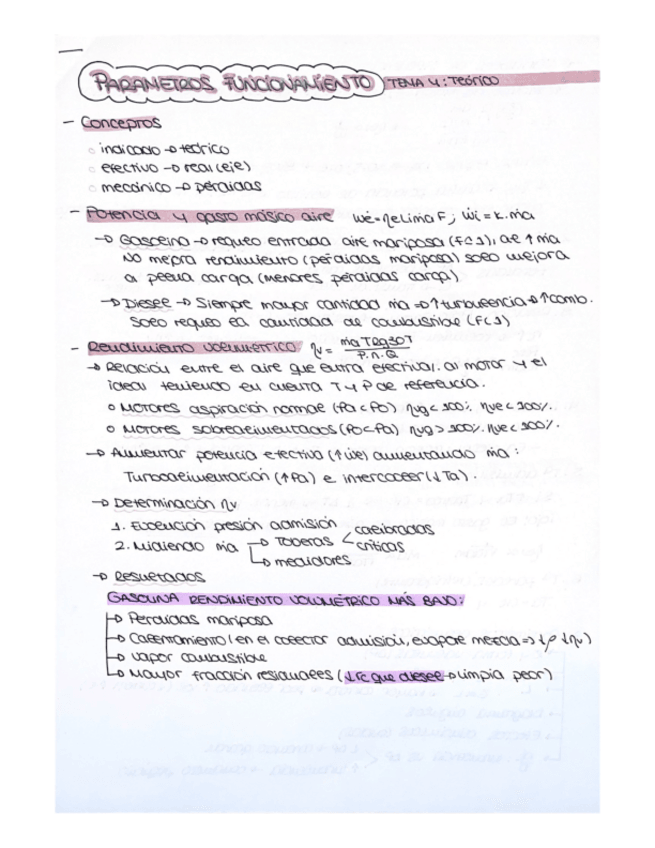 PARAMETROS FUNCIONAMIENTO TEMA 4: TEÓRICO
- Conceptos
○ indicado → teórico
○ efectivo → real (eje)
○ mecánico → pérdidas
- Potencia y gasto másico aire Ẇe = ηe Li ṁa F ; Ẇi = k. ṁa
→ Gasolina → regulo entrada aire mariposa (F≤1), al ↑ ṁa
No mejora rendimiento (pérdidas mariposa) solo mejora
a plena carga (menores pérdidas carga)
→ Diesel → Siempre mayor cantidad ṁa ⇒ ↑ turbulencia → ↑ comb.
Solo regulo la cantidad de combustible (F<1)
- Rendimiento volumétrico. ηv =
→ Relación entre el aire que entra efectivam. al motor y el
ideal teniendo en cuenta T y P de referencia.
○ MOTORES aspiración normal (Pa<Po) ηvg < 100%. ηve < 100%.
○ MOTORES sobrealimentados (Po<Pa) ηvg > 100%. ηve < 100%.
→ Aumentar potencia efectiva (↑Ẇe) aumentando ṁa :
Turboalimentación (↑Pa) e intercooler (↓Ta).
→ Determinación ηv
1. Evolución presión admisión
2. Midiendo ṁa → Toberas < calibradas
críticas
→ medidores
→ Resultados
GASOLINA RENDIMIENTO VOLUMÉTRICO MÁS BAJO:
→ Pérdidas mariposa
→ Calentamiento (en el colector admisión, evapore mezcla ⇒ ↓ρ ↓ηv)
→ Vapor combustible
→ Mayor fracción residuales (↓rc que diesel → Limpia peor)